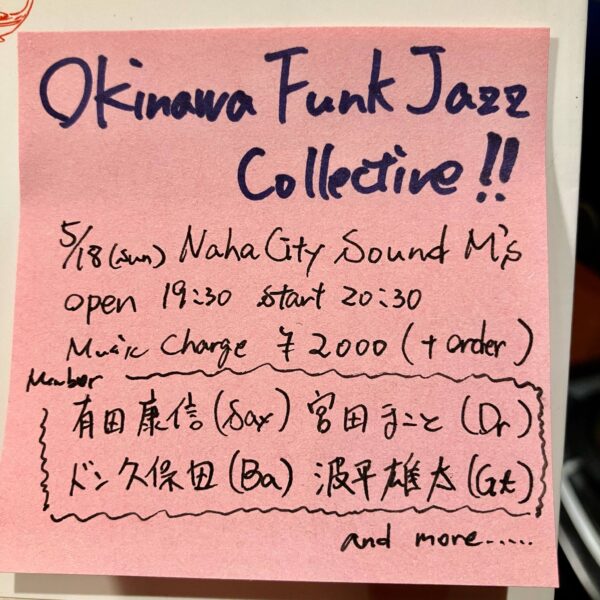 Okinawa Funk Jazz
Collective!!
5/18(sun) Naha City Sound M's
open 19:30 start 20:30
Music Charge ¥2000(+order)
Member
有田康信(Sax) 宮田まこと(Dr)
ドン久保田(Ba) 波平雄太(Gt)
and more.....